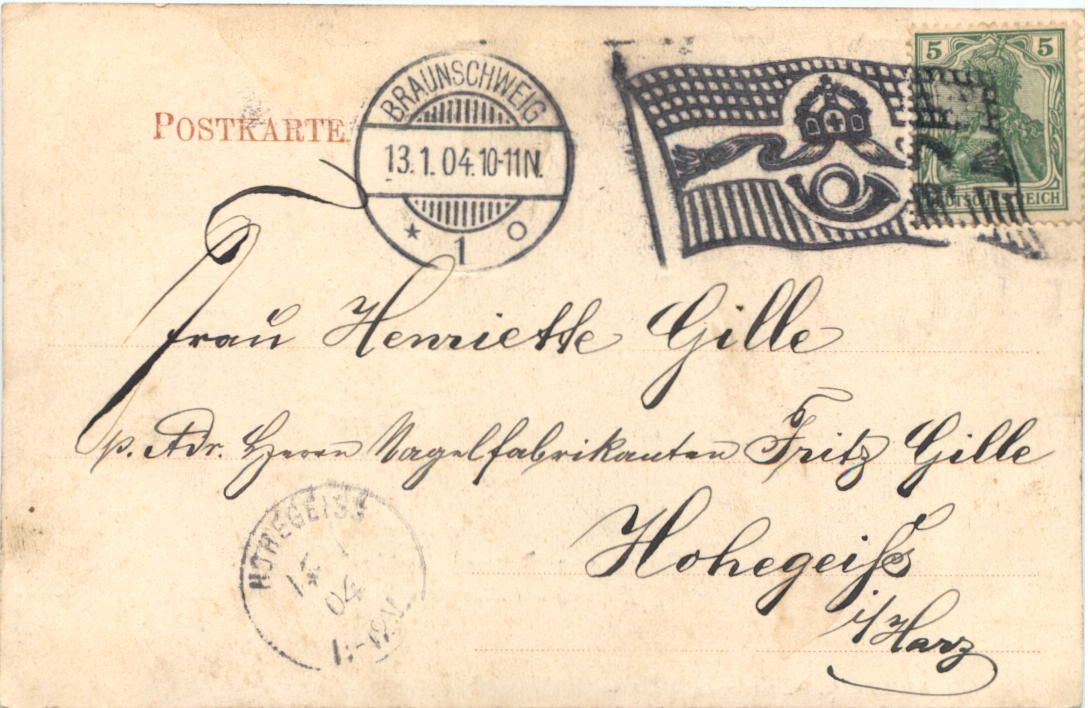 5 5
DEUTSCHES REICH
BRAUNSCHWEIG
13.1.04.10-11N.
* 1 o
POSTKARTE
Frau Henriette Gille
p. Adr. Herrn Nagelfabrikanten Fritz Gille
Hohegeiß
i/Harz
HOHEGEISS
04